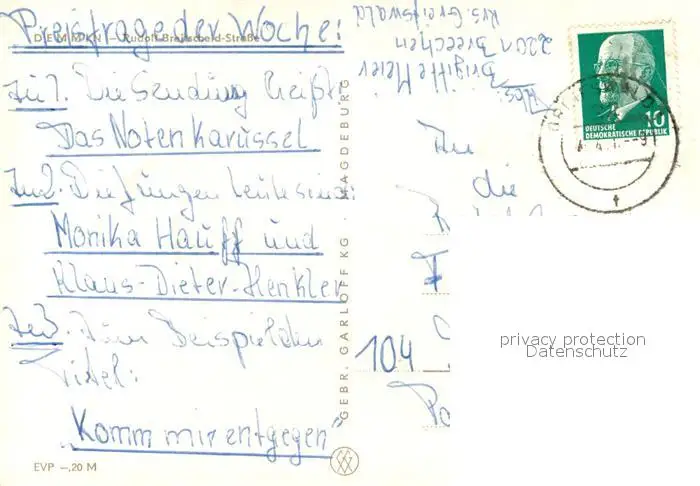 Preisfrage der Woche:
DEMMIN - Rudolf-Breitscheid-Straße
Zu 1. Die Sendung heißt:
Das Notenkarussel
Zu 2. Die jungen Leute sind:
Monika Hauff und
Klaus-Dieter-Henkler
Zu 3. Zum Beispiel den
Titel:
„Komm mir entgegen"
EVP -,20 M
GEBR. GARLOFF KG · MAGDEBURG
Abs:
Brigitte Meier
2201 Breechen
Krs. Greifswald
An
die
104
DEUTSCHE
DEMOKRATISCHE REPUBLIK
10
privacy protection
Datenschutz